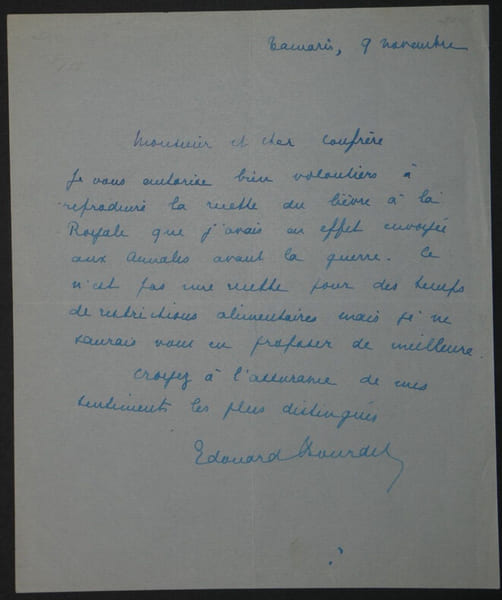 Tamaris, 9 novembre
Monsieur et cher confrère
Je vous autorise bien volontiers à
reproduire la recette du lièvre à la
Royale que j'avais en effet envoyée
aux Annales avant la guerre. Ce
n'est pas une recette pour des temps
de restrictions alimentaires mais je ne
saurais vous en proposer de meilleure.
Croyez à l'assurance de mes
sentiments les plus distingués
Edouard Bourdet